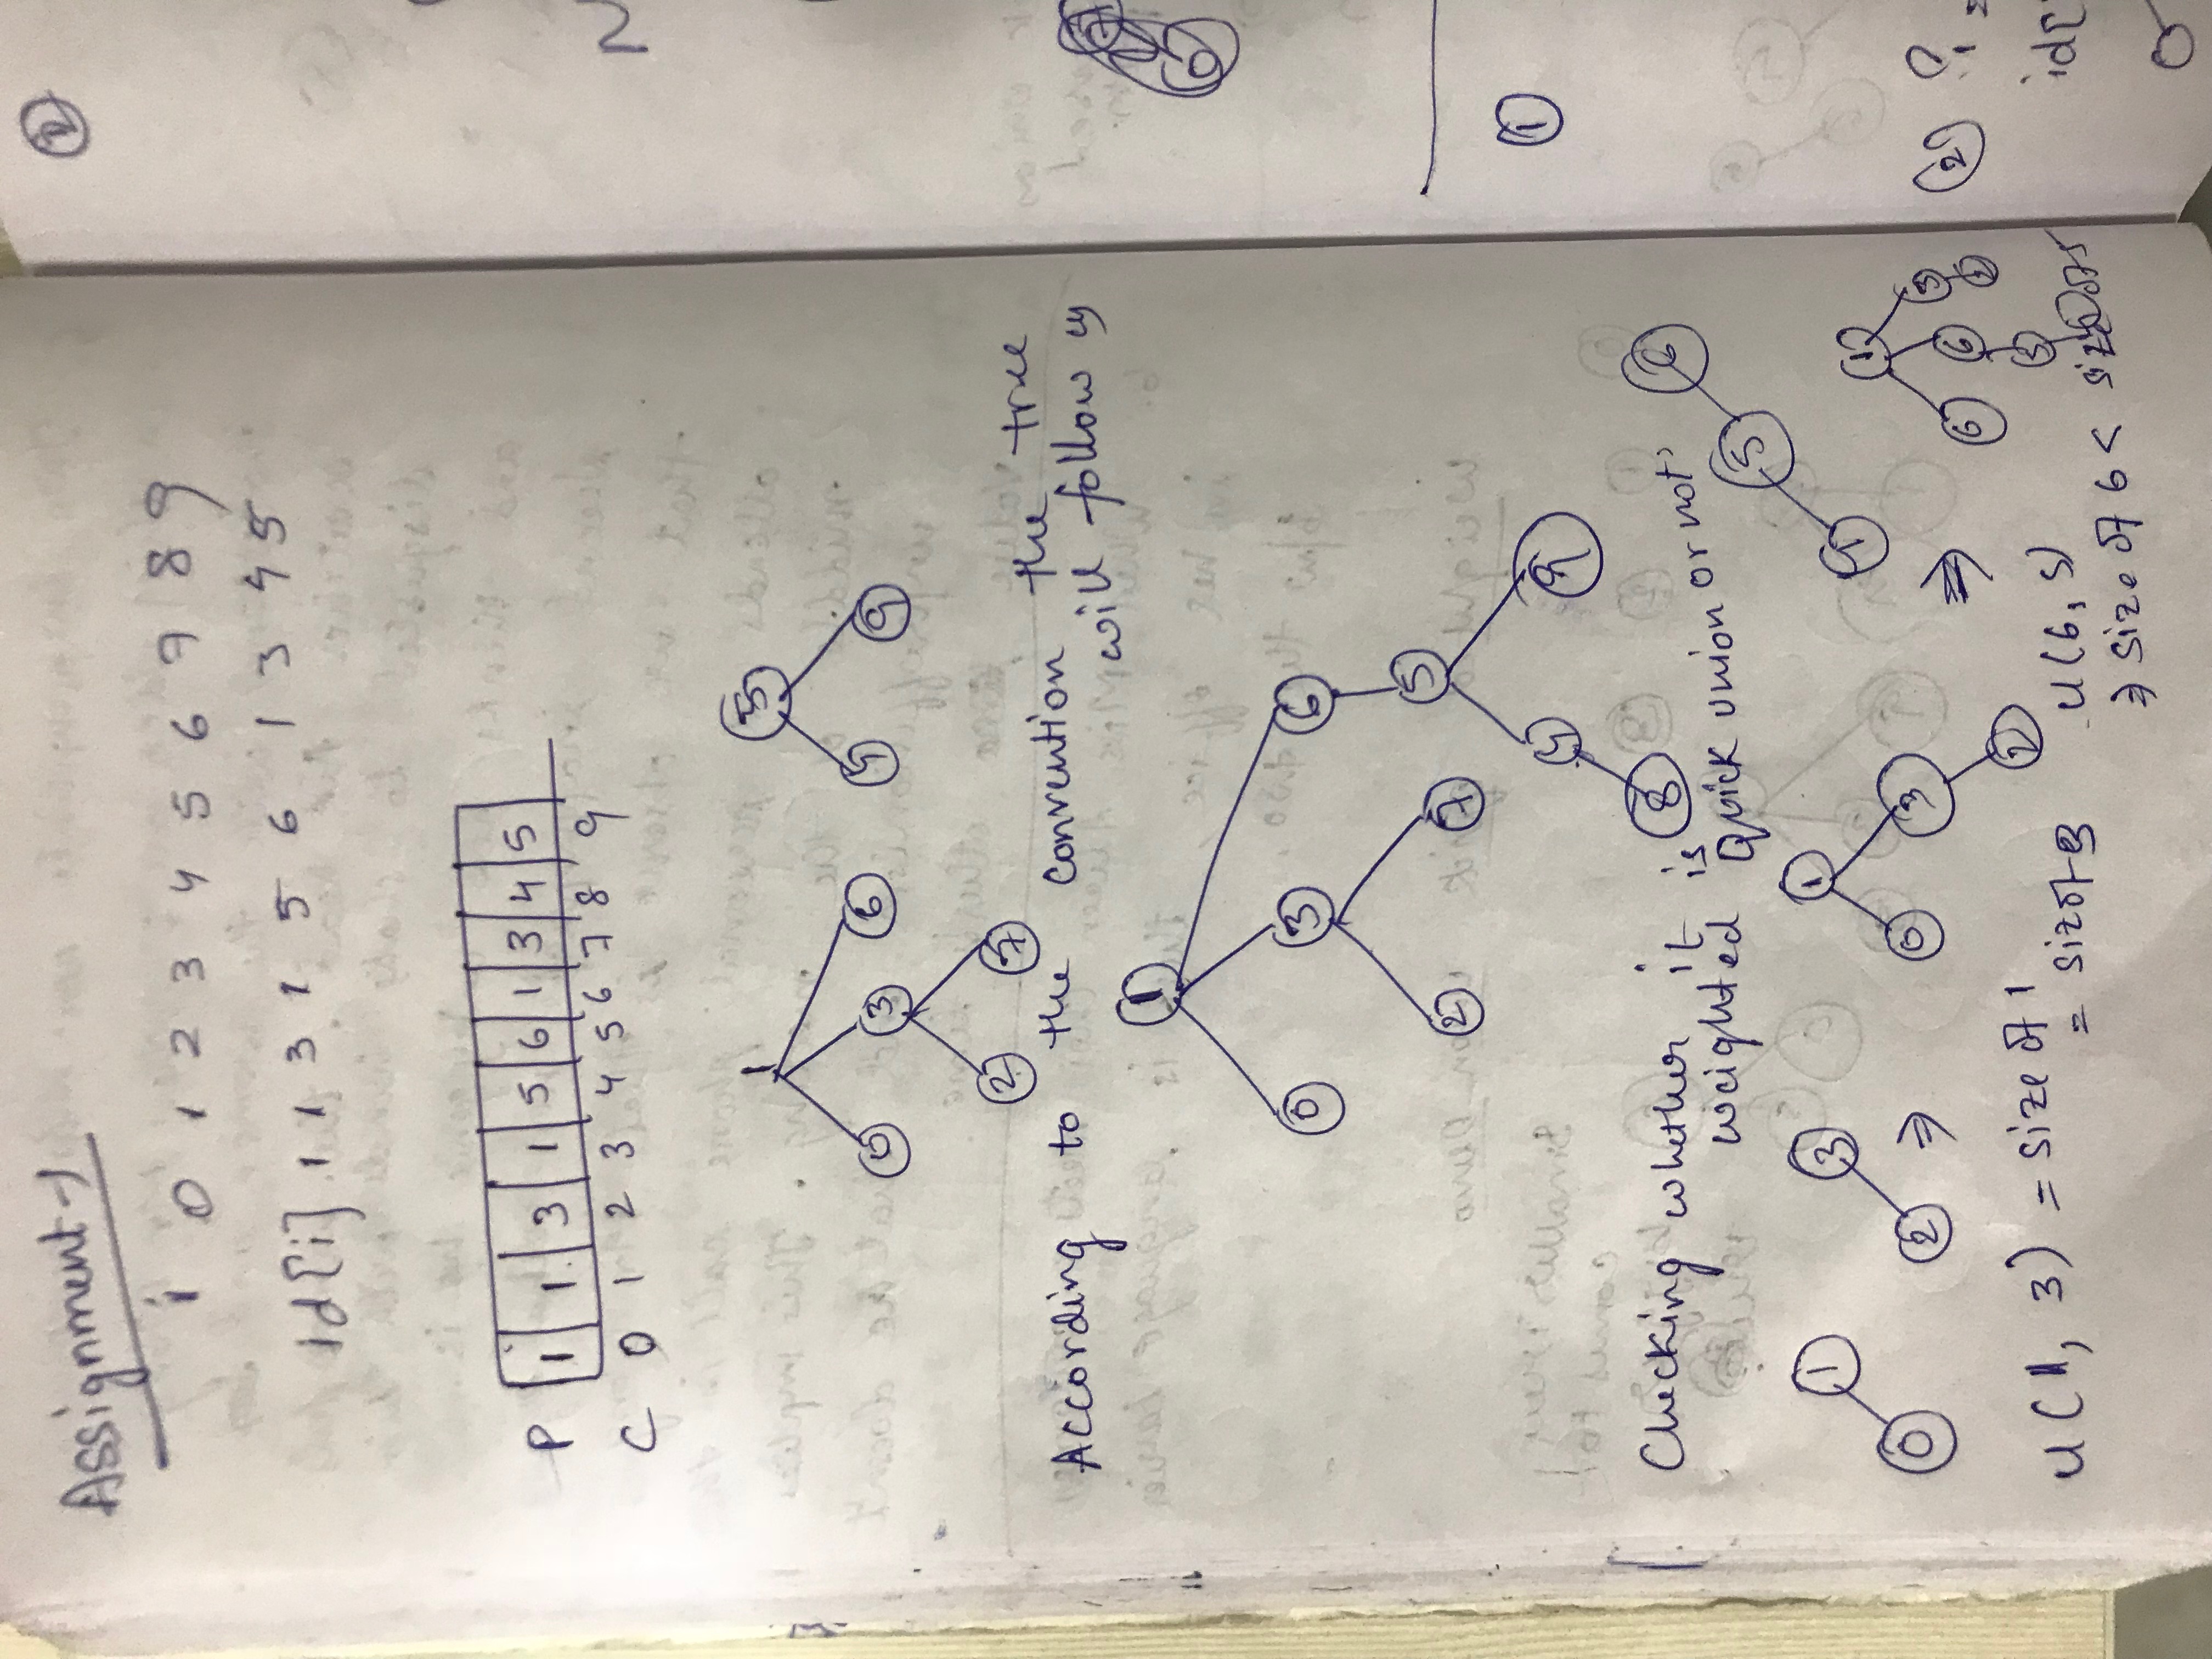 Assignment-1
i 0 1 2 3 4 5 6 7 8 9
id[i] 1 1 3 1 5 6 1 3 4 5
P 1 1 3 1 5 6 1 3 4 5
C 0 1 2 3 4 5 6 7 8 9
1 5
0 3 6 4 9
2 7
According to the convention the tree
will follow is
1
0 3 6
5
2 7
4 9
8
Checking whether it is
weighted Quick union or not
6
5
4
1 3 1
0 2 ⇒ 0 3
2
⇒
1
0 6 3
5 2
U(1, 3) = size of 1
= size of 3
U(6, 5)
⇒ size of 6 < size of 5
2
7
0
1
2
id[